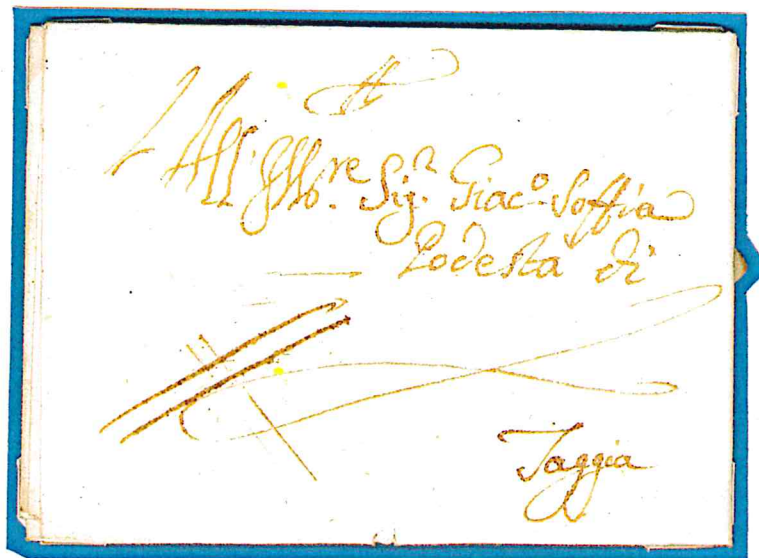 All' Ill.re Sig.r Giac.o Soffia
Podesta di
Taggia